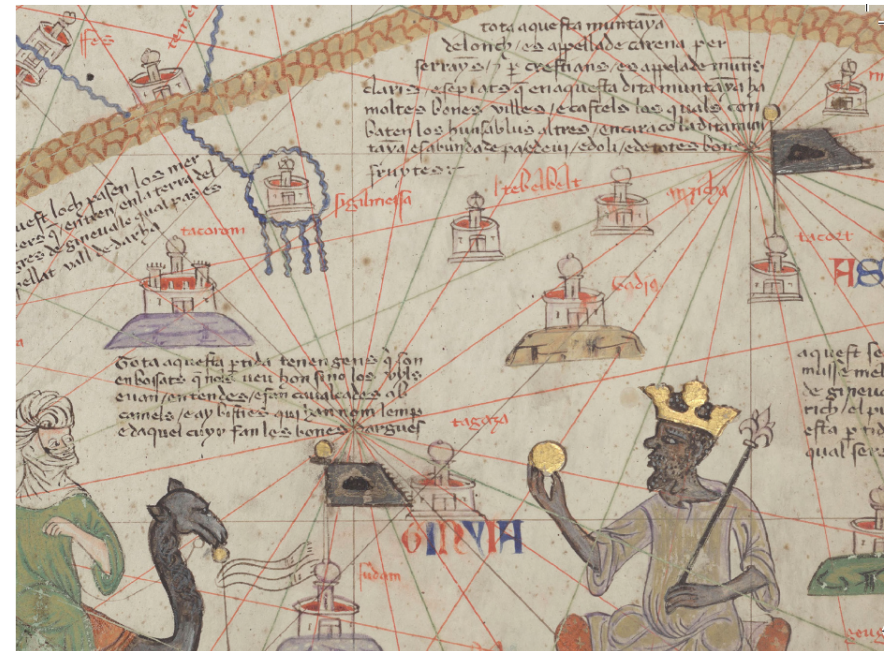 tota aquesta muntaya
de lonch / es appellade carena per
serrayns / ⁊ per crestians / es appelade muntis
claris / e sepiats q̄ en aquesta dita muntaya ha
moltes bones villes / e castels los quals con
baten los huns ab lus altres / encara co la dita mun
taya es abunda de pa / e de vi / e doli / e de totes bones
fruytes :~
ffes
aquest loch pasen los mer
q̄ entren / en la terra del
gres de gineua lo qual pas es
pellat vall de darha
sigilmessa
tacorom
tebelbelt
tacort
AS
Tota aquesta ptida tenen gens q̄ son
enbosats q̄ nols veu hom sino los vyls
e van / en tendes / e fan caualcades ab
camels / e ay bisties qui han nom lemp
e daquel cuyr fan les bones dargues
tagaza
aquest se
musse mel
de gineu
rich / el pu
esta ptid
qual se
GINYIA
sudam
geug